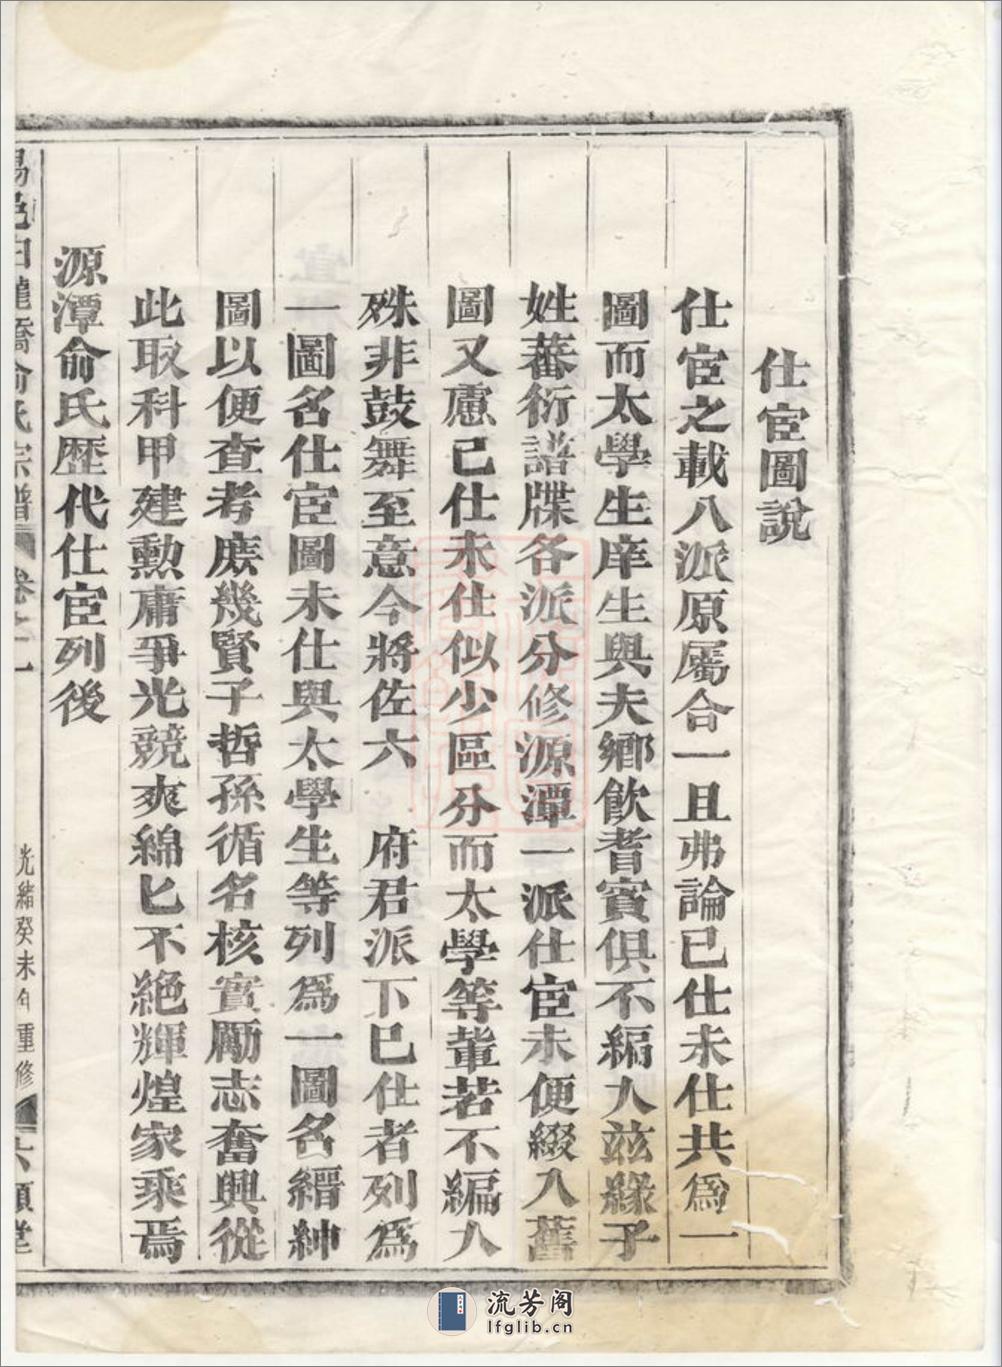 仕宦圖說
仕宦之載八派原屬合一且弗論已仕未仕共爲一
圖而太學生庠生與夫鄉飲耆賓俱不編入兹緣子
姓蕃衍譜牒各派分修源潭一派仕宦未便綴入舊
圖又慮已仕未仕似少區分而太學等輩若不編入
殊非鼓舞至意今將佐六 府君派下已仕者列爲
一圖名仕宦圖未仕與太學生等列爲一圖名縉紳
圖以便查考庶幾賢子哲孫循名核實勵志奮興從
此取科甲建勲庸爭光競爽綿匕不絕輝煌家乘焉
源潭俞氏歷代仕宦列後
俞氏宗譜 卷之一 光緒癸未年重修
流芳阁
lfglib.cn